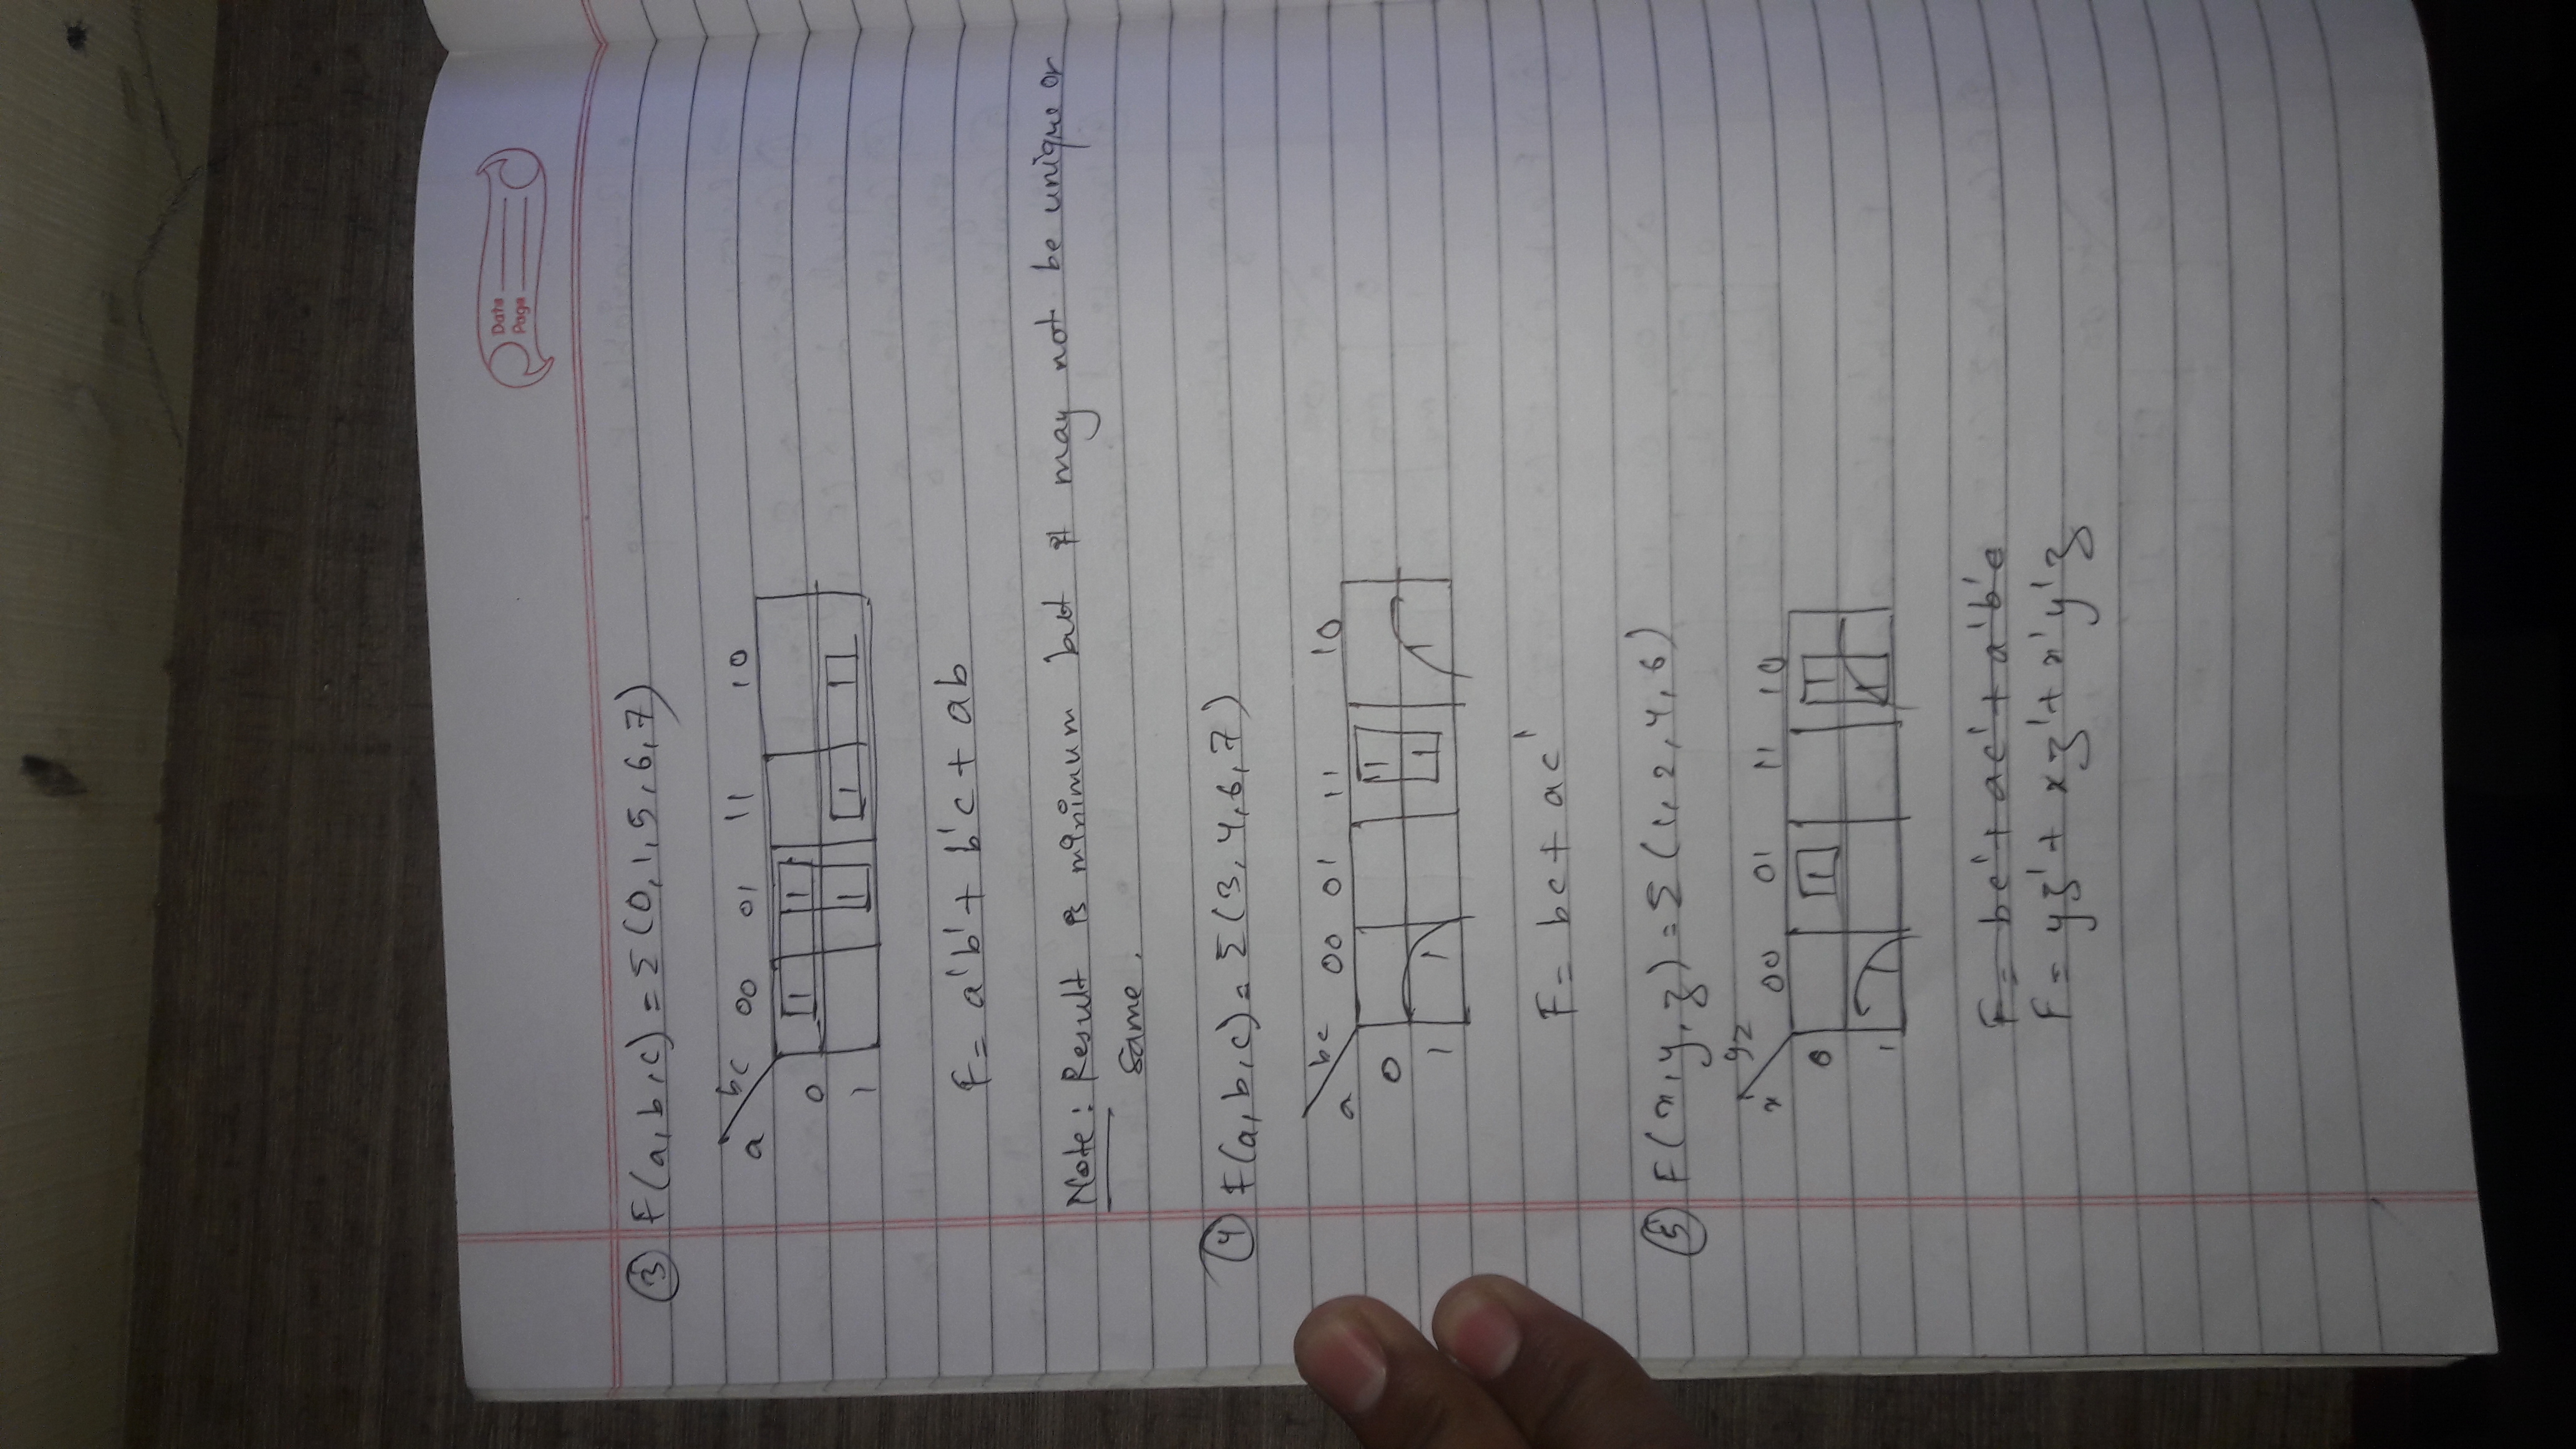 Date
Page
③ F(a, b, c) = Σ(0, 1, 5, 6, 7)
a bc 00 01 11 10
0 1 1
1 1 1 1
F = a'b' + b'c + ab
Note: Result is minimum but it may not be unique or
same.
④ F(a, b, c) = Σ(3, 4, 6, 7)
a bc 00 01 11 10
0 1
1 1 1 1
F = bc + ac'
⑤ F(x, y, z) = Σ(1, 2, 4, 6)
x yz 00 01 11 10
0 1 1
1 1 1
F = bc' + ac' + a'b'c
F = yz' + xz' + x'y'z